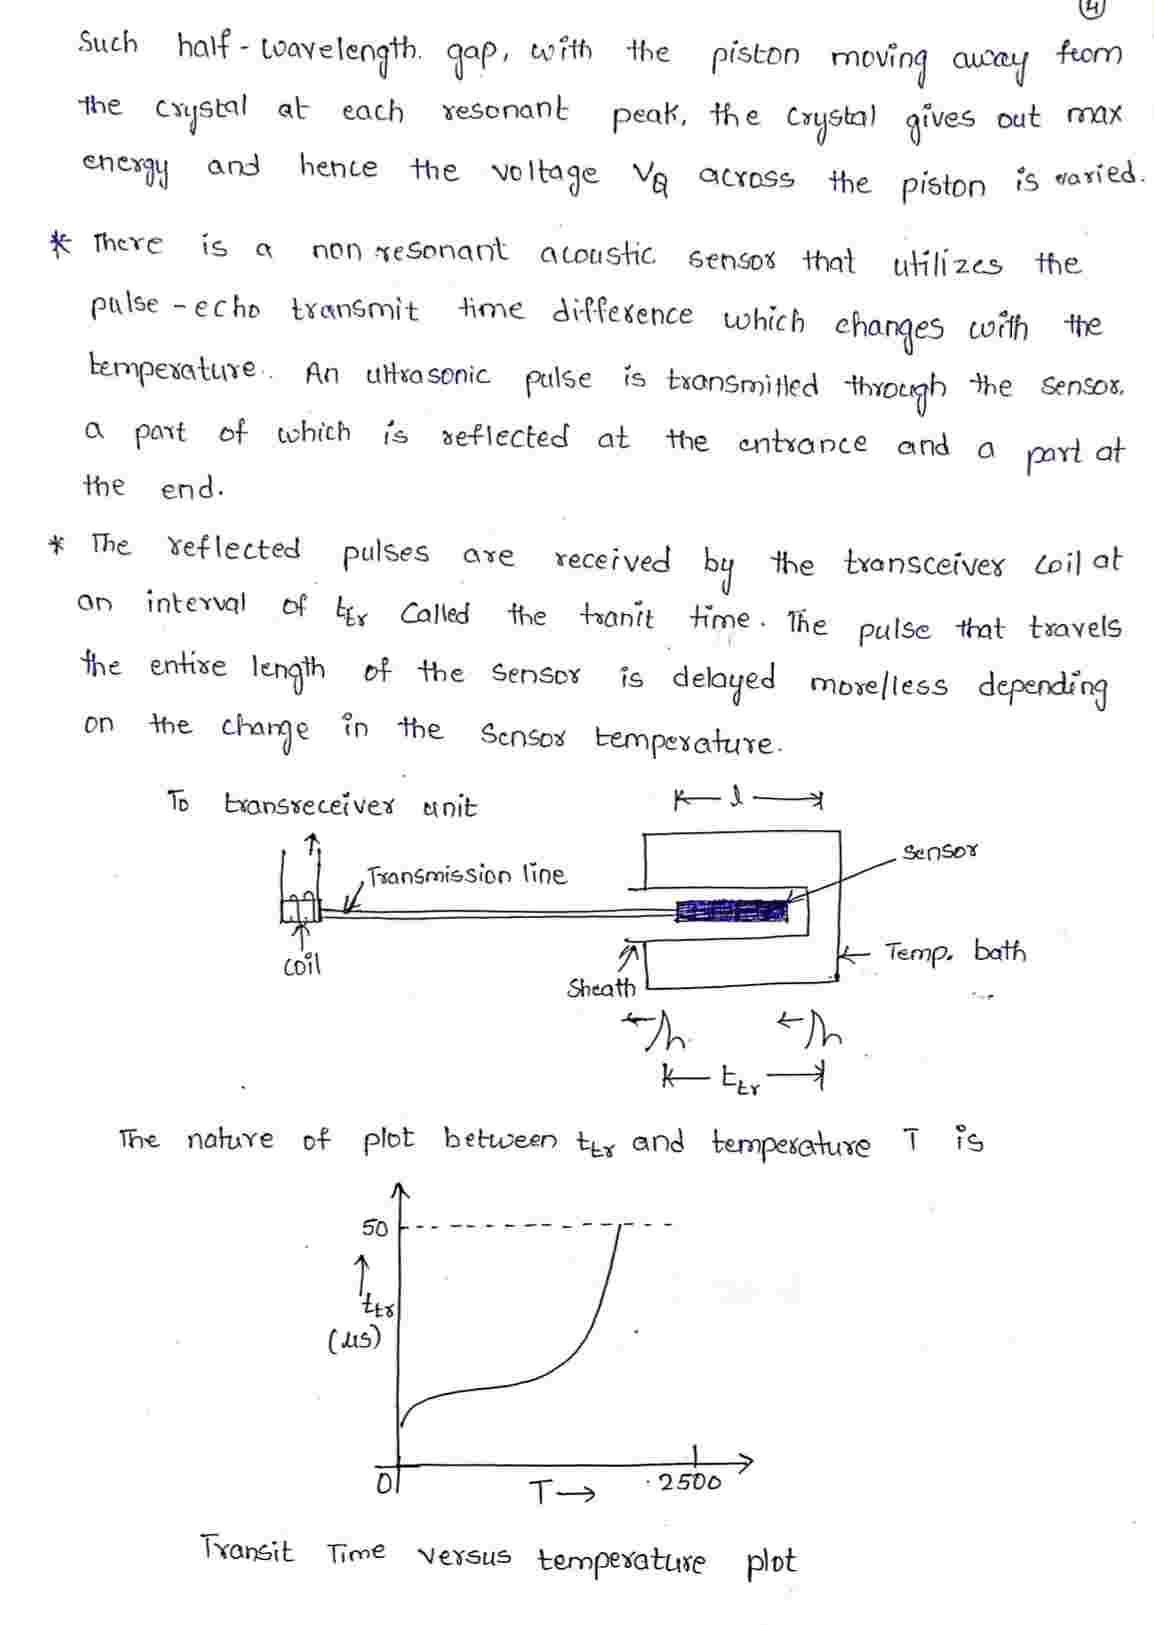 4
Such half-wavelength. gap, with the piston moving away from
the crystal at each resonant peak, the crystal gives out max
energy and hence the voltage VQ across the piston is varied.
* There is a non resonant acoustic sensor that utilizes the
pulse-echo transmit time difference which changes with the
temperature.. An ultrasonic pulse is transmitted through the sensor,
a part of which is reflected at the entrance and a part at
the end.
* The reflected pulses are received by the transceiver coil at
an interval of ttr called the tranit time. The pulse that travels
the entire length of the sensor is delayed more/less depending
on the change in the sensor temperature.
To transreceiver unit
l
Transmission line
Sensor
coil
Sheath
Temp. bath
ttr
The nature of plot between ttr and temperature T is
50
ttr
(μs)
0
T→
2500
Transit Time versus temperature plot